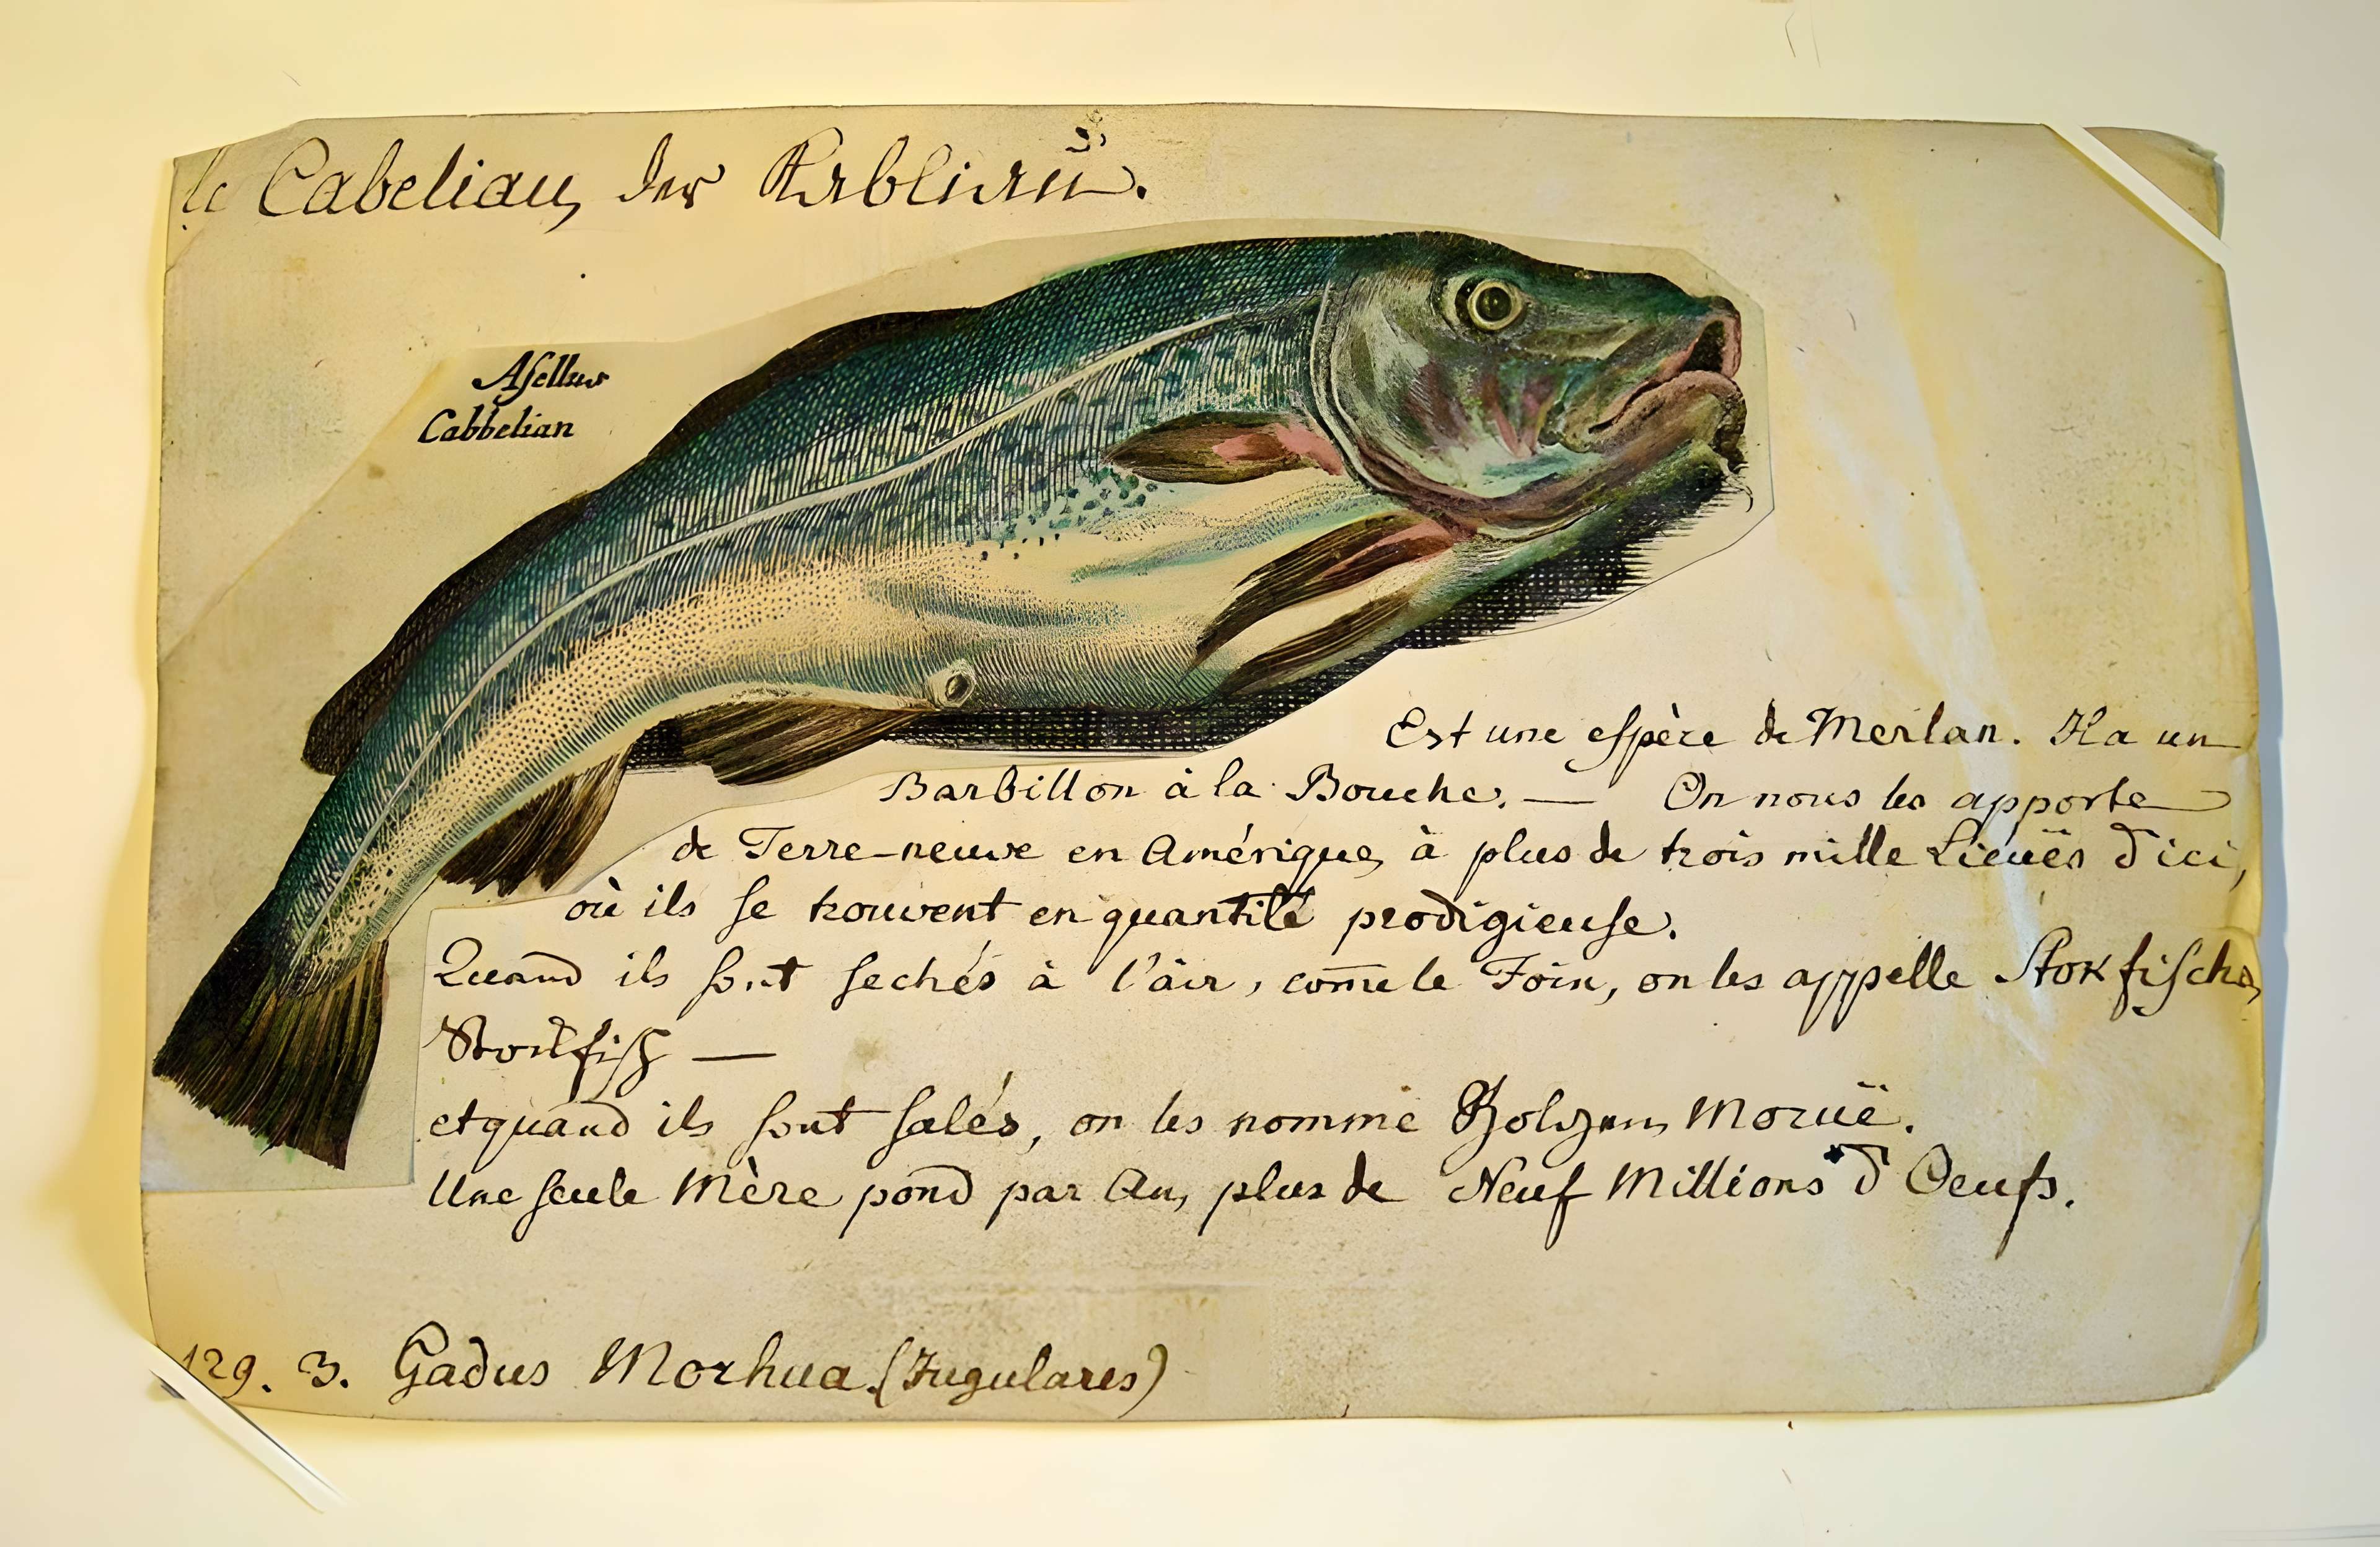 le Cabeliau, der Kabliau.
Asellus
Cabbelian
Est une espèce de Merlan. Il a un
Barbillon à la Bouche. — On nous les apporte
de Terre-neuve en Amérique, à plus de trois mille Lieuës d'ici,
où ils se trouvent en quantité prodigieuse.
Quand ils sont sechés à l'air, com̄e le Foin, on les appelle Stokfische,
Stockfisch —
et quand ils sont salés, on les nomme Moruë.
Une seule Mère pond par An, plus de Neuf Millions d'Oeufs.
129. 3. Gadus Morhua. (Jugulares)